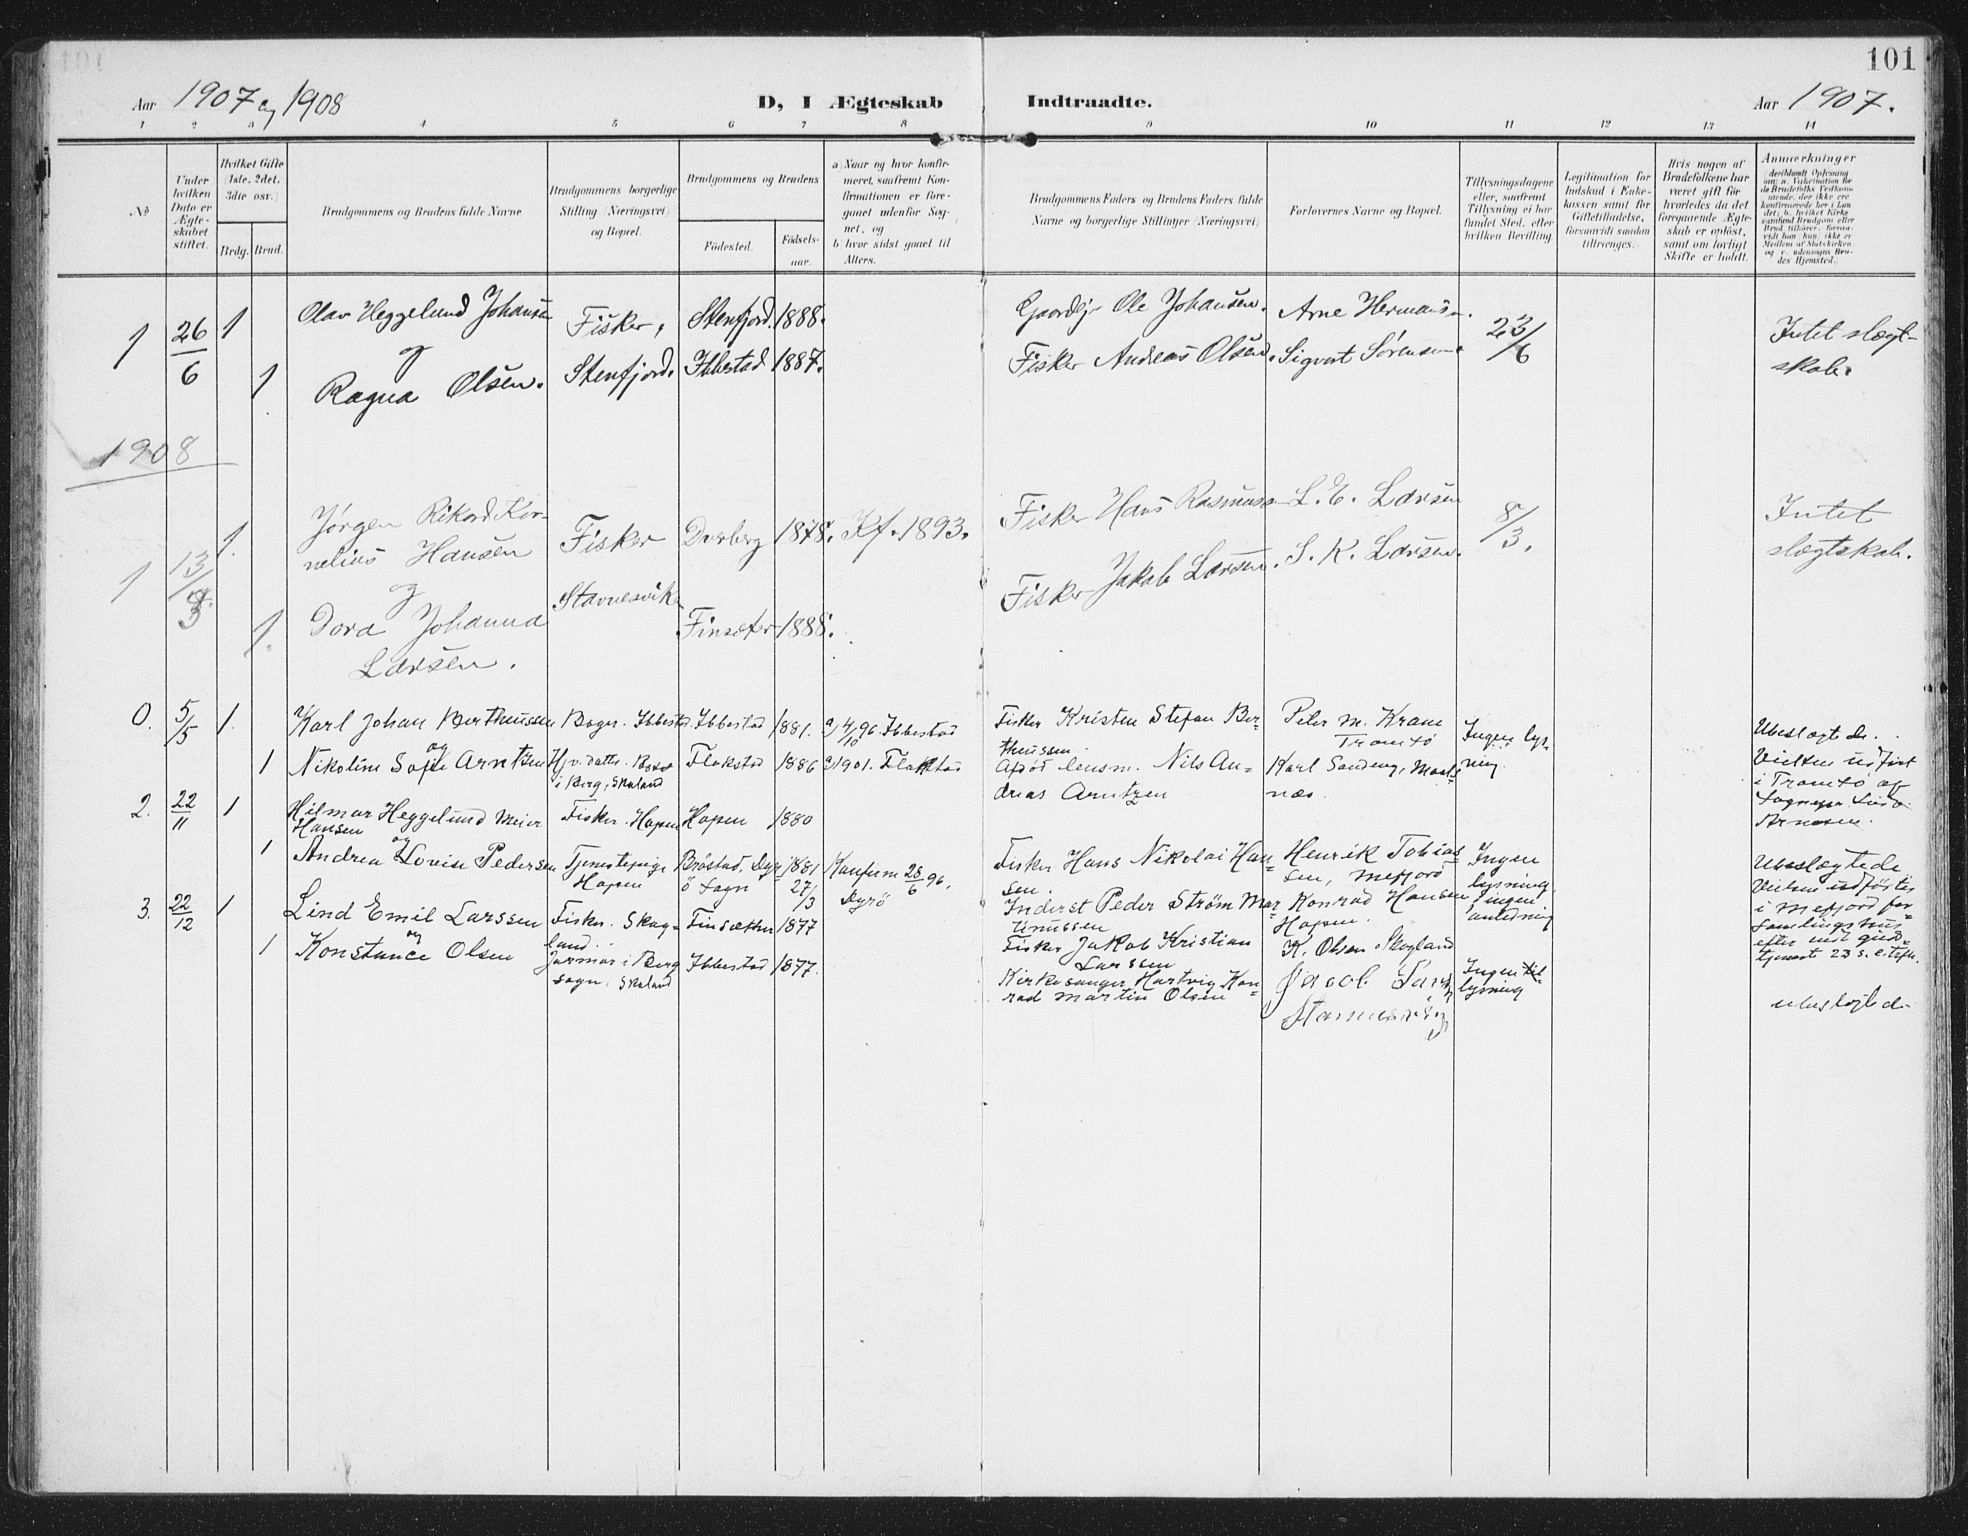 101
Aar 1907 og 1908
D, I Ægteskab
Indtraadte.
Aar 1907.
1 2 3 4 5 6 7 8 9 10 11 12 13 14
No
Under hvilken Dato er Ægteskabet stiftet.
Hvilket Gifte (1ste, 2det, 3die osv.)
Brdg. Brud.
Brudgommens og Brudens fulde Navne
Brudgommens borgerlige Stilling (Næringsvei) og Bopæl.
Brudgommens og Brudens
Fødested.
Fødselsaar.
a) Naar og hvor konfirmeret, saafremt Konfirmationen er foregaaet udenfor Sognet, og
b) hvor sidst gaaet til Alters.
Brudgommens Faders og Brudens Faders fulde Navne og borgerlige Stillinger (Næringsvei)
Forlovernes Navne og Bopæl.
Tillysningsdagene eller, saafremt Tillysning ei har fundet Sted, efter hvilken Bevilling.
Legitimation for Indskud i Enkekassen samt for Giftetilladelse, forsaavidt saadan tiltrænges.
Hvis nogen af Brudefolkene har været gift før hvorledes da det foregaaende Ægteskab er opløst, samt om lovligt Skifte er holdt.
Anmærkninger
1 26/6 1
Olav Heggelund Johansen
og
1 Ragna Olsen.
Fisker,
Stenfjord.
Stenfjord. 1888.
Ibbestad 1887.
Ole Johansen.
Fisker Andreas Olsen.
Arne Hermansn.
Sigvart Sørensen.
23/6
Intet slægt-
skab.
1908
1 13/3 1.
Jørgen Rikard Kor-
nelius Hansen
og
1. Dora Johanna
Larsen.
Fisker
Stavnesvik
1878. Kf. 1893.
Finsæter 1888.
Fisker Hans Rasmusn
Fisker Jakob Larsen.
L. E. Larsen
S. K. Larsen.
8/3.
Intet
slægtskab.
0. 5/5 1.
Karl Johan Bertheussen
og
1 Nikoline Sofie Arntzen
Ibbestad
i Berg, Skaland
Ibbestad 1881. a) 4/10 96 Ibbestad
Flakstad 1886 a) 1901. Flakstad
Fisker Kristen Stefan Ber-
theussen.
Afdød lensm. Nils An-
dreas Arntzen
Peter M. Krane
Tromsö
Karl Sandeng, Maals
næs.
Ingen lys-
ning
Ubeslægtede.
Vielsen udført
i Tromsö af
2. 22/11 1
Hilmar Heggelund Meier
Hansen
og
1 Andrea Lovise Pedersen
Fisker. Hopen
Tjenestepige
Hopen
Hopen 1880
Brøstad, Dyr-
ö Sogn
1881
27/3
Konfirm 28/6 96.
Dyrö
Fisker Hans Nikolai Han-
sen.
Inderst Peder Strøm Mar-
tinussen
Henrik Tobias-
sen, Mefjord
Konrad Hansen
Hopen.
Ingen
lysning.
Ubeslægtede
i Mefjord for-
samlingshus
efter endt guds-
tjeneste
3. 22/12 1
Lind Emil Larssen
og
1 Konstance Olsen
Fisker. Skog-
land.
Jormor i Berg
sogn, Skaland
Finsæther 1877
Ibbestad 1877.
Fisker Jakob Kristian
Larssen
Kirkesanger Hartvig Kon-
rad Martin Olsen
K. Olsen Skogland
Jacob
Ingen til-
lysning